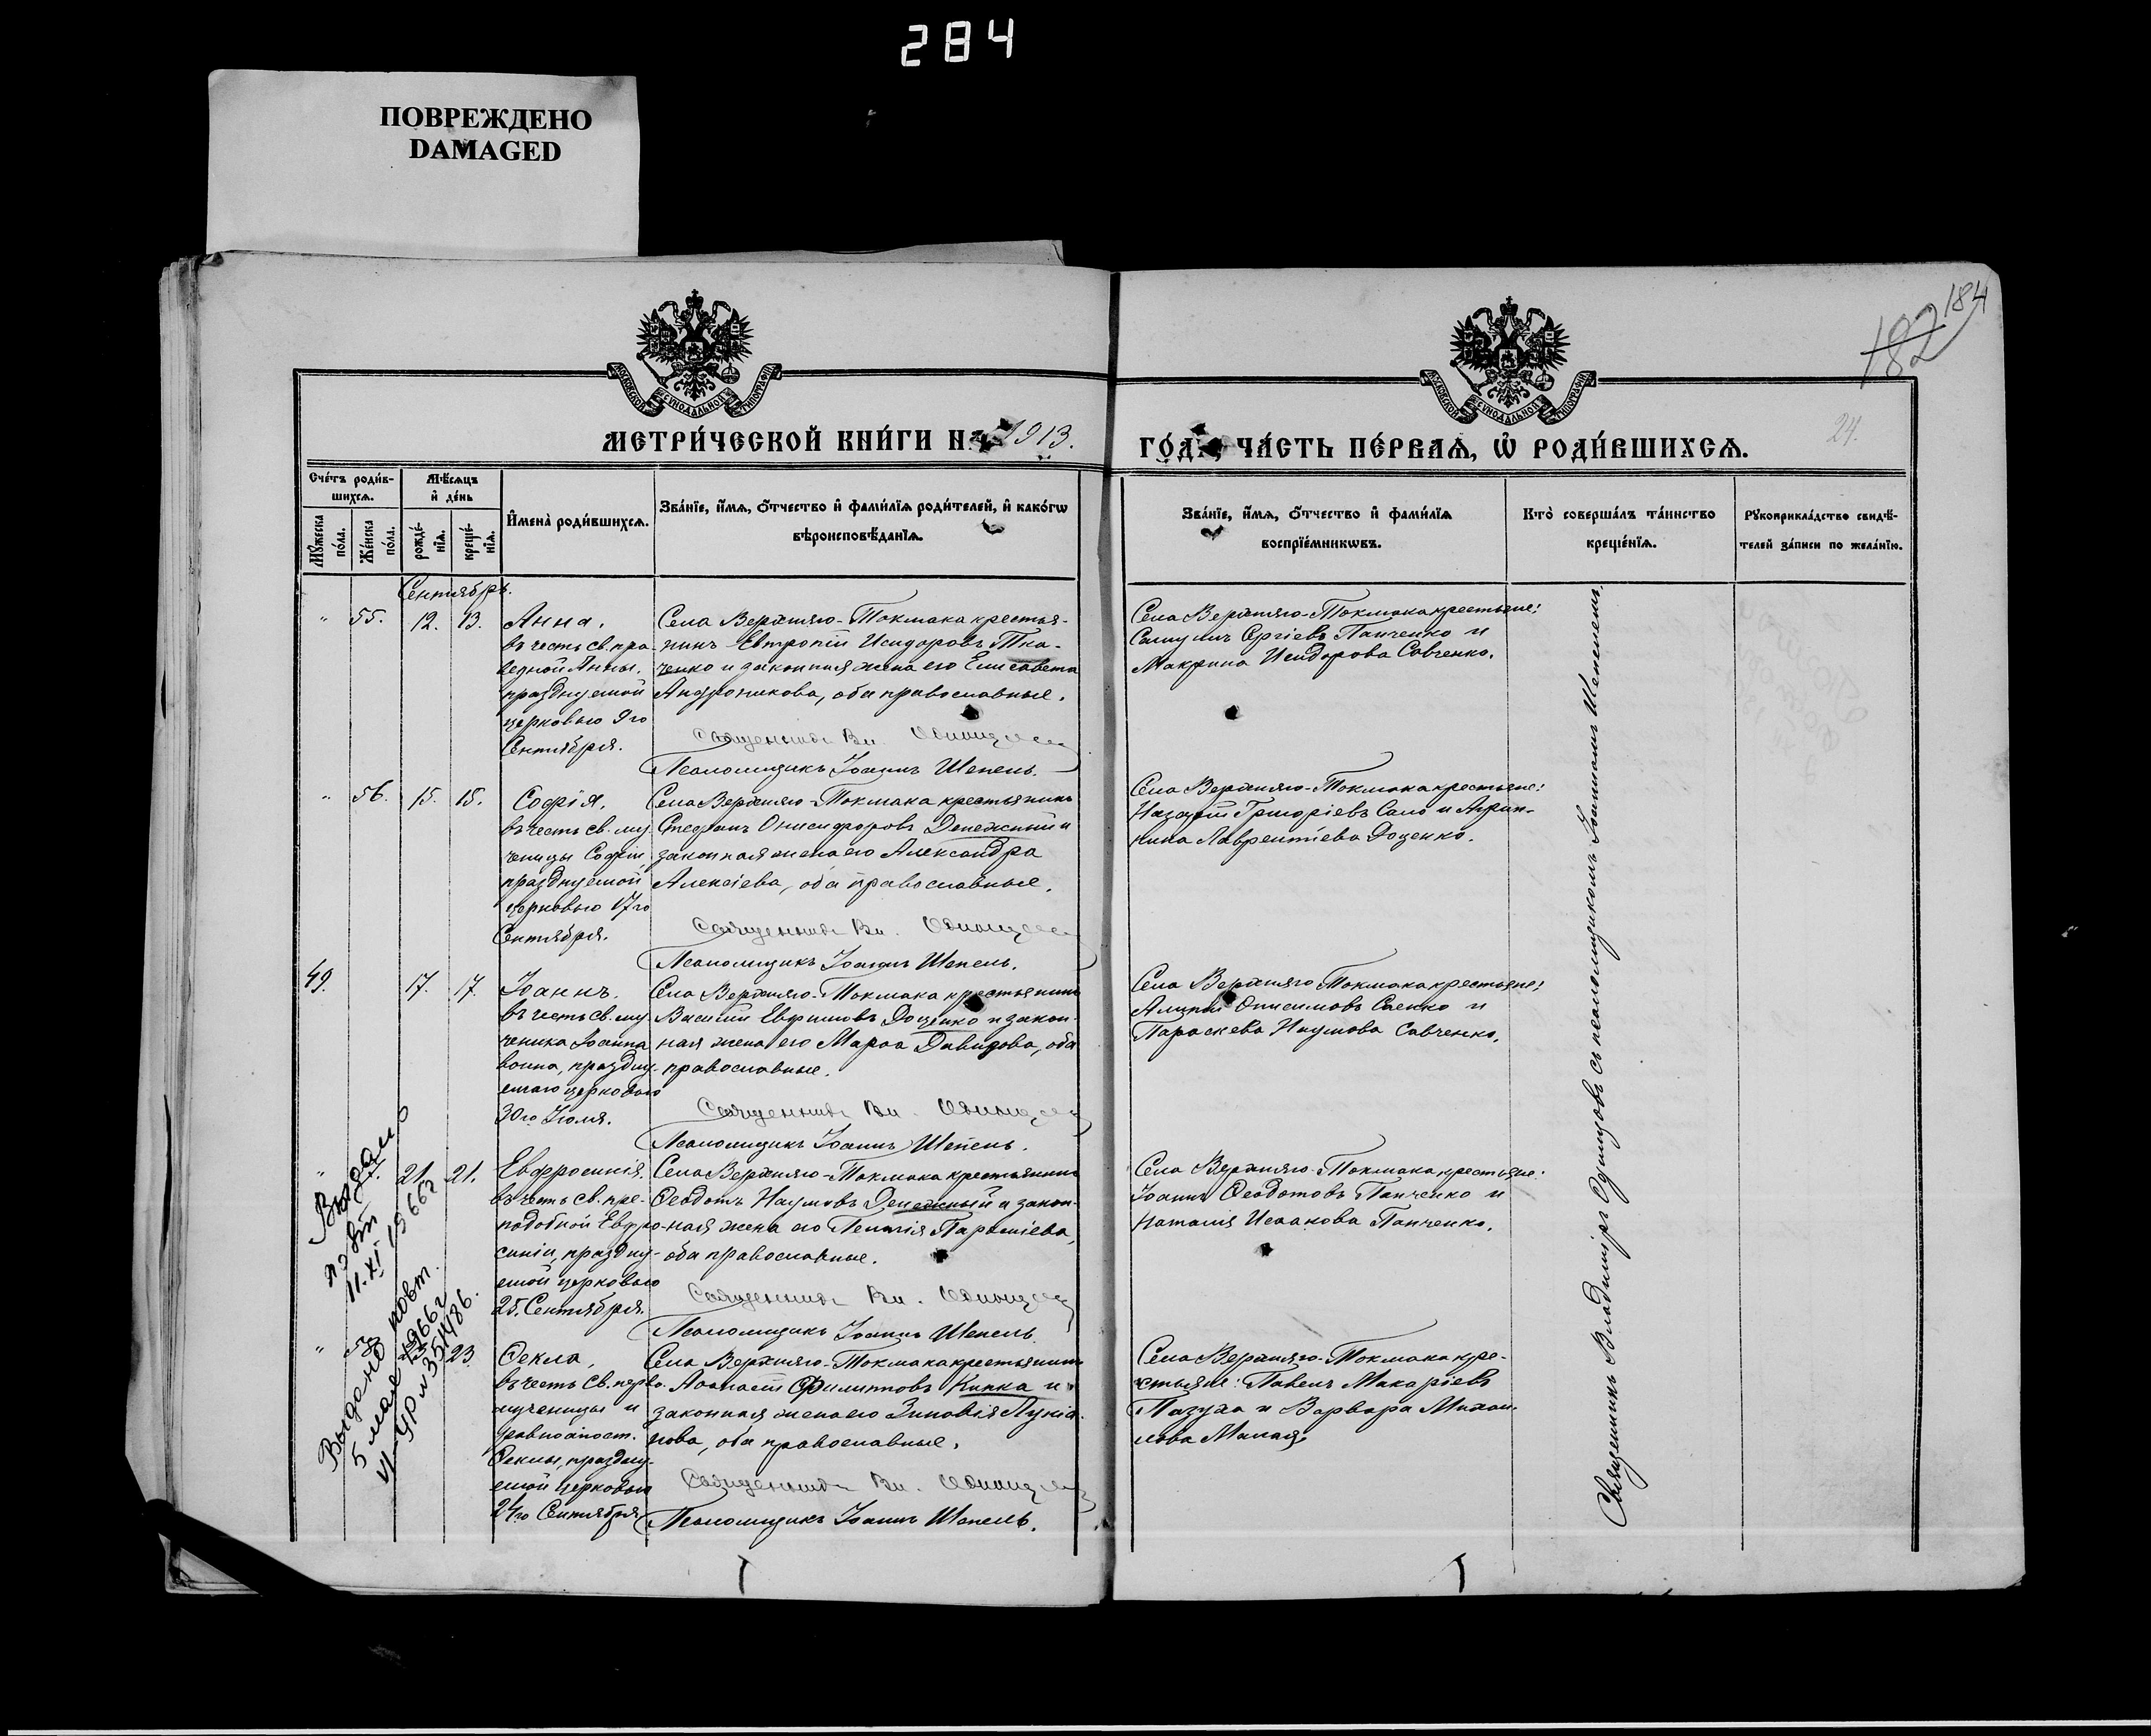 284
ПОВРЕЖДЕНО
DAMAGED
184
182
24.
МОСКОВСКОЙ СѴНОДАЛЬНОЙ ТИПОГРАФІИ
МОСКОВСКОЙ СѴНОДАЛЬНОЙ ТИПОГРАФІИ
МЕТРИ́ЧЕСКОЙ КНИ́ГИ НА 1913.
ГО́ДЪ, ЧА́СТЬ ПЕ́РВАѦ, Ѡ҆ РОДИ́ВШИХСѦ.
Сче́тъ роди́в-
шихсѧ.
Мѣ́сѧцъ
и҆ де́нь
Мꙋ́жеска
по́ла.
Же́нска
по́ла.
рожде́-
нїѧ.
креще́-
нїѧ.
И҆мена̀ роди́вшихсѧ.
Зва́нїе, и҆́мѧ, ѻ҆́тчество и҆ фами́лїѧ роди́телей, и҆ како́гѡ
вѣроисповѣ́данїѧ.
Зва́нїе, и҆́мѧ, ѻ҆́тчество и҆ фами́лїѧ
воспрїе́мникѡвъ.
Кто̀ соверша́лъ та́инство
креще́нїѧ.
Рꙋкоприкла́дство свидѣ́-
телей за́писи по жела́нїю.
Сентябрь.
" 55. 12. 13.
Анна,
въ честь св. пра-
ведной Анны,
празднуемой
церковью 9го
Сентября.
Села Верхняго-Токмака крестья-
нинъ Евтропій Исидоровъ Тка-
ченко и законная жена его Елисавета
Андроникова, оба православные.
Священникъ Вл. Одинцовъ
Псаломщикъ Іоаннъ Шепель.
Села Верхняго-Токмака крестьяне:
Самуилъ Сергіевъ Панченко и
Макрина Исидорова Савченко.
" 56. 15. 15.
Софія,
въ честь св. му-
ченицы Софіи,
празднуемой
церковью 17го
Сентября.
Села Верхняго-Токмака крестьянинъ
Стефанъ Онисифоровъ Денежный и
законная жена его Александра
Алексіева, оба православные.
Священникъ Вл. Одинцовъ
Псаломщикъ Іоаннъ Шепель.
Села Верхняго-Токмака крестьяне:
Назарій Григоріевъ Сало и Агрип-
пина Лаврентіева Доценко.
49. 17. 17.
Іоаннъ,
въ честь св. му-
ченика Іоанна
воина, праздну-
емаго церковью
30го Іюля.
Села Верхняго-Токмака крестьянинъ
Василій Ефимовъ Доценко и закон-
ная жена его Марѳа Давидова, оба
православные.
Священникъ Вл. Одинцовъ
Псаломщикъ Іоаннъ Шепель.
Села Верхняго Токмака крестьяне:
Алипій Онисимовъ Саенко и
Параскева Наумова Савченко.
" 21. 21.
Евфросинія,
въ честь св. пре-
подобной Евфро-
синіи, праздну-
емой церковью
25. Сентября.
Села Верхняго-Токмака крестьянинъ
Ѳеодотъ Наумовъ Денежный и закон-
ная жена его Пелагія Парѳеніева,
оба православные.
Священникъ Вл. Одинцовъ
Псаломщикъ Іоаннъ Шепель.
Села Верхняго-Токмака крестьяне:
Іоаннъ Ѳеодотовъ Панченко и
Наталія Исаакова Панченко.
Выдано
повт
11.XI 1966г
" 58 23.
Ѳекла,
въ честь св. перво-
мученицы и
равноапост.
Ѳеклы, праздну-
емой церковью
24го Сентября.
Села Верхняго-Токмака крестьянинъ
Аѳанасій Филипповъ Кипка и
законная жена его Зиновія Лукіа-
нова, оба православные.
Священникъ Вл. Одинцовъ
Псаломщикъ Іоаннъ Шепель.
Села Верхняго-Токмака кре-
стьяне: Павелъ Макаріевъ
Пазуха и Варвара Михаи-
лова Малая.
Выдано повт.
5 мая 1966г
Священникъ Владиміръ Одинцовъ съ псаломщикомъ Іоанномъ Шепелемъ.